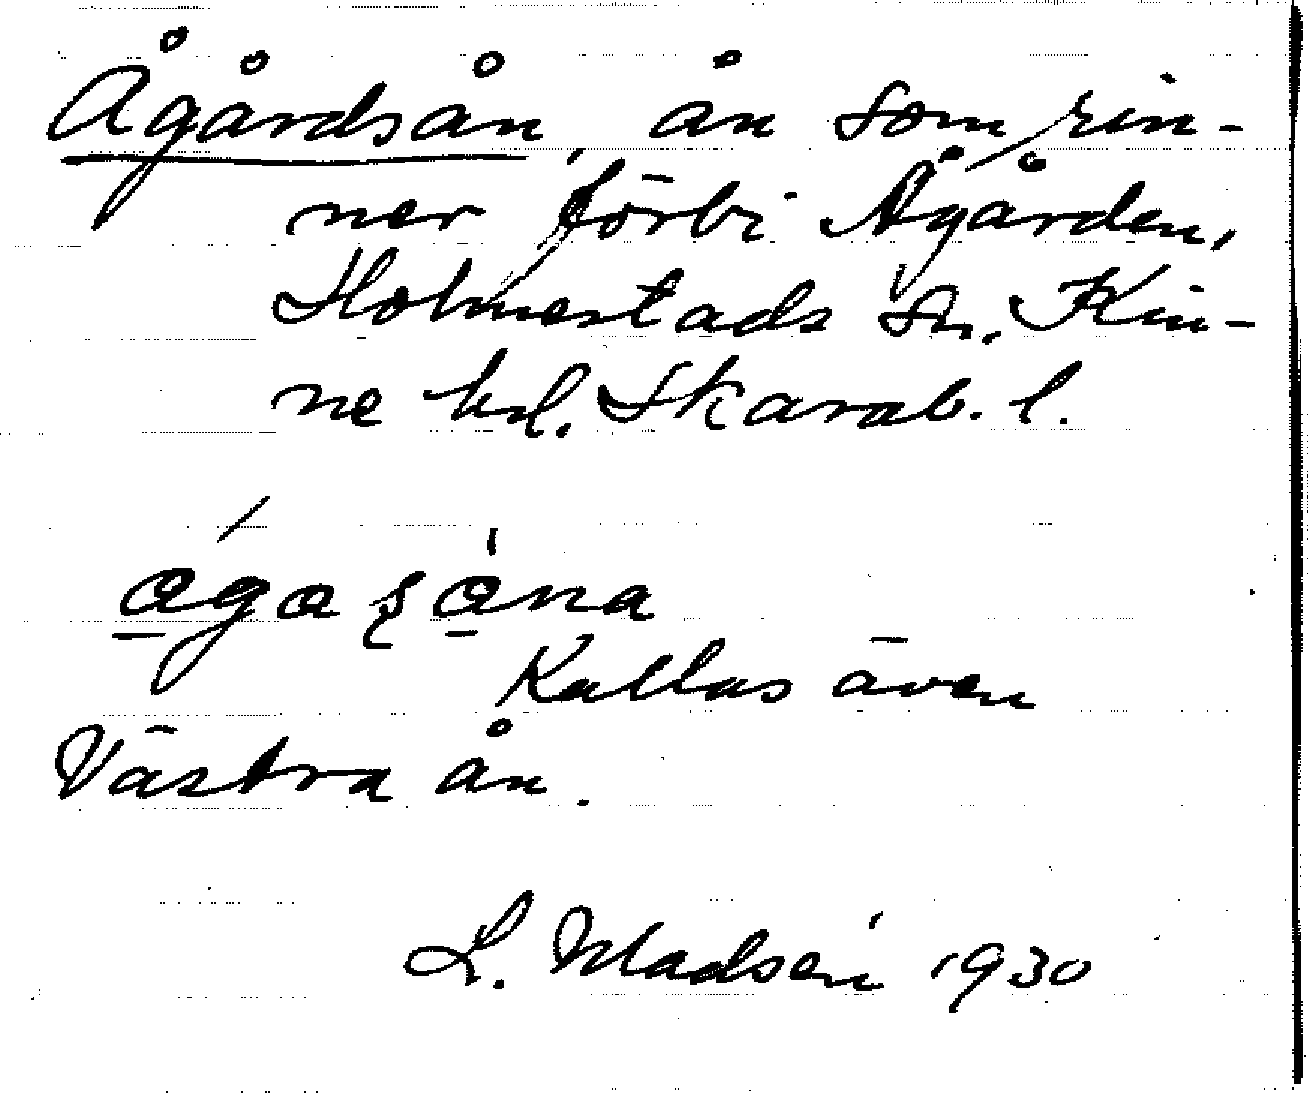 Ågårdsån, ån som rin-
ner förbi Ågården,
Holmestads sn. Kin-
ne hd. Skarab. l.
Kallas även
Västra ån.
L. Madsén 1930